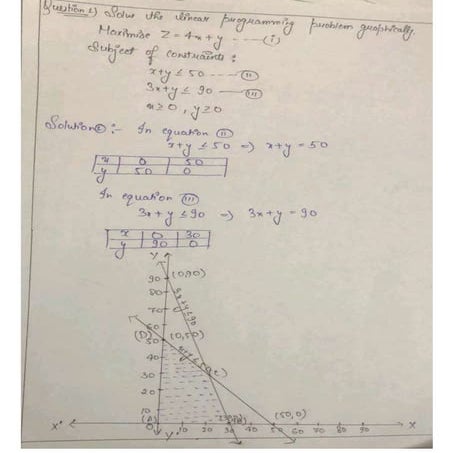 Question 1) Solve the linear programming problem graphically.
Maximise Z = 4x + y ---- (i)
Subject of constraints:
x+y ≤ 50 ---- (ii)
3x+y ≤ 90 ---- (iii)
x ≥ 0, y ≥ 0
Solution :- In equation (ii)
x+y ≤ 50 => x+y = 50
x 0 50
y 50 0
In equation (iii)
3x+y ≤ 90 => 3x+y = 90
x 0 30
y 90 0
Y
90 (0,90)
80
70
3x+y≤90
60
(D) 50 (0,50)
40
30
20
10
(50,0)
X' 0 10 20 30 40 50 60 70 80 90 X
Y'